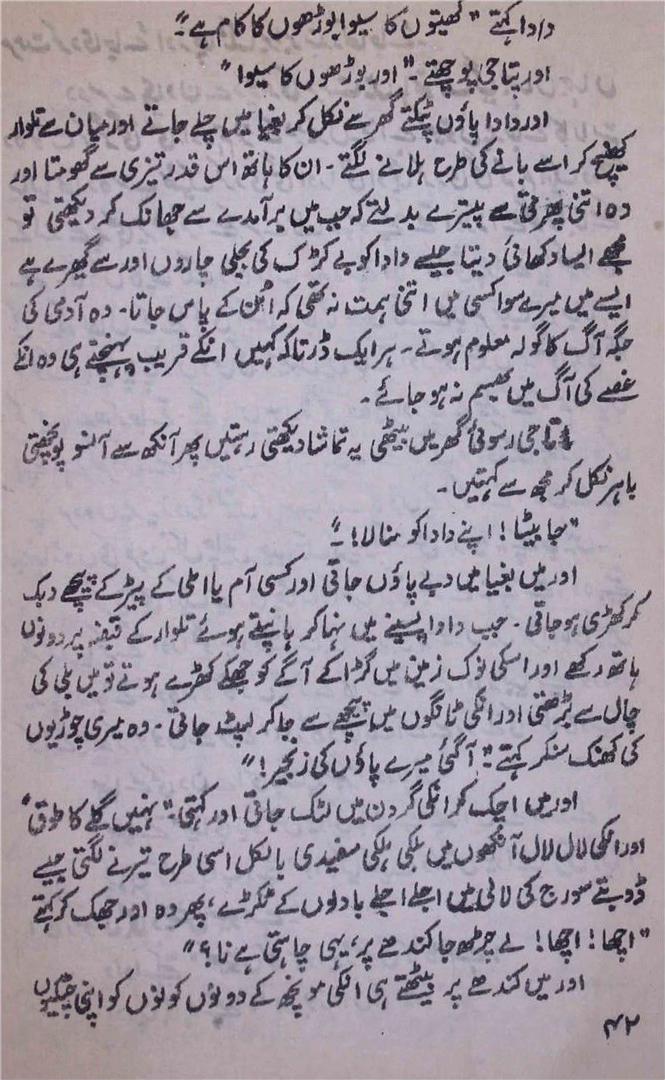 دادا کہتے "کھیتوں کا سیوا بوڑھوں کا کام ہے۔"
اور پتا جی پوچھتے۔ "اور بوڑھوں کا سیوا"
اور دادا پاؤں پٹکتے گھر سے نکل کر بغیا میں چلے جاتے اور میان سے تلوار
کھینچ کر اسے بانے کی طرح ہلانے لگتے۔ ان کا ہاتھ اس قدر تیزی سے گھومتا اور
وہ اتنی پھرتی سے پینترے بدلتے کہ جب میں برآمدے سے جھانک کر دیکھتی تو
مجھے ایسا دکھائی دیتا جیسے دادا کو بے کڑک کی بجلی چاروں اور سے گھیرے ہے
ایسے میں میرے سوا کسی میں اتنی ہمت نہ تھی کہ اُن کے پاس جاتا۔ وہ آدمی کی
جگہ آگ کا گولہ معلوم ہوتے۔ ہر ایک ڈرتا کہ کہیں انکے قریب پہنچتے ہی وہ انکے
غصے کی آگ میں بھسم نہ ہو جائے۔
ماتا جی رسوئی گھر میں بیٹھی یہ تماشا دیکھتی رہتیں پھر آنکھ سے آنسو پونچھتی
باہر نکل کر مجھ سے کہتیں۔
"جا بیٹا! اپنے دادا کو منا لا!۔"
اور میں بغیا میں دبے پاؤں جاتی اور کسی آم یا املی کے پیڑ کے پیچھے دبک
کر کھڑی ہو جاتی۔ جب دادا پسینے میں نہا کر ہانپتے ہوئے تلوار کے قبضہ پر دونوں
ہاتھ رکھے اور اسکی نوک زمین میں گڑا کے آگے کو جھکے کھڑے ہوتے تو میں بلی کی
چال سے بڑھتی اور انکی ٹانگوں میں پیچھے سے جا کر لپٹ جاتی۔ وہ میری چوڑیوں
کی کھنک سنکر کہتے "آ گئی میرے پاؤں کی زنجیر!"
اور میں اچک کر انکی گردن میں لٹک جاتی اور کہتی۔ "نہیں گلے کا طوق"
اور انکی لال لال آنکھوں میں ہلکی ہلکی سفیدی بالکل اسی طرح تیرنے لگتی جیسے
ڈوبتے سورج کی لالی میں اجلے اجلے بادلوں کے ٹکڑے، پھر وہ اور جھک کر کہتے
"اچھا! اچھا! لے چڑھ جا کندھے پر، یہی چاہتی ہے نا؟"
اور میں کندھے پر بیٹھتے ہی انکی مونچھ کے دونوں کونوں کو اپنی چٹکیوں
۴۲